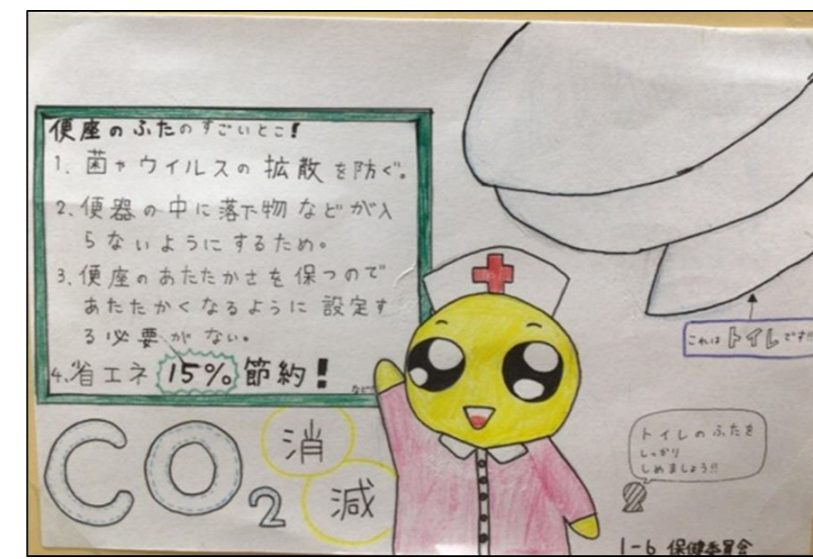 便座のふたのすごいとこ!
1. 菌やウイルスの拡散を防ぐ。
2. 便器の中に落下物などが入
らないようにするため。
3. 便座のあたたかさを保つので
あたたかくなるように設定す
る必要がない。
4. 省エネ 15% 節約!
など
CO2
消
減
これはトイレです!!
トイレのふたを
しっかり
しめましょう!!
1-6 保健委員会